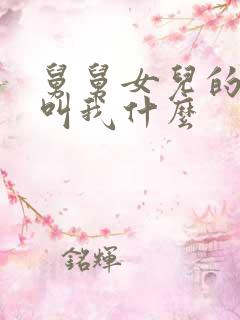 舅舅女兒的
叫我什麼
銘輝